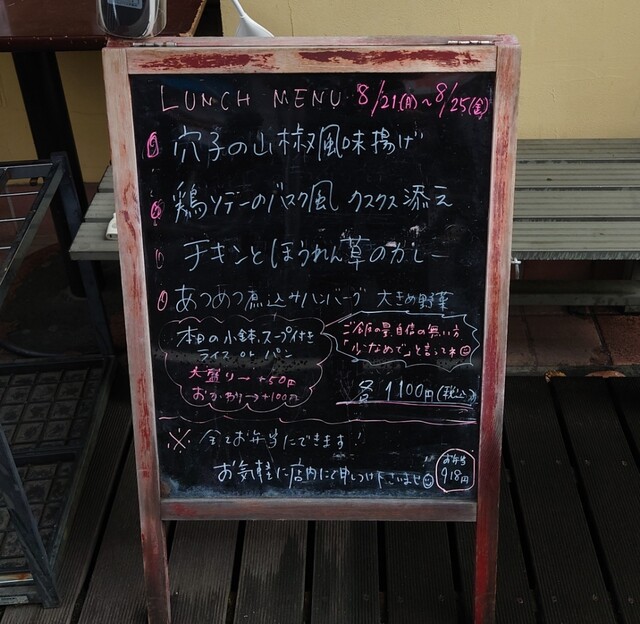 LUNCH MENU 8/21(月)～8/25(金)
穴子の山椒風味揚げ
鶏ソテーのバスク風 クスクス添え
チキンとほうれん草のカレー
あつあつ煮込みハンバーグ 大きめ野菜
本日の小鉢、スープ付き
ライス or パン
大盛り→+50円
おかわり→+100円
ご飯の量、自信の無い方
「少なめで」と言ってネ
各 1100円(税込)
※ 全てお弁当にできます！
お気軽に店内にて申しつけ下さいませ
お弁当
918円